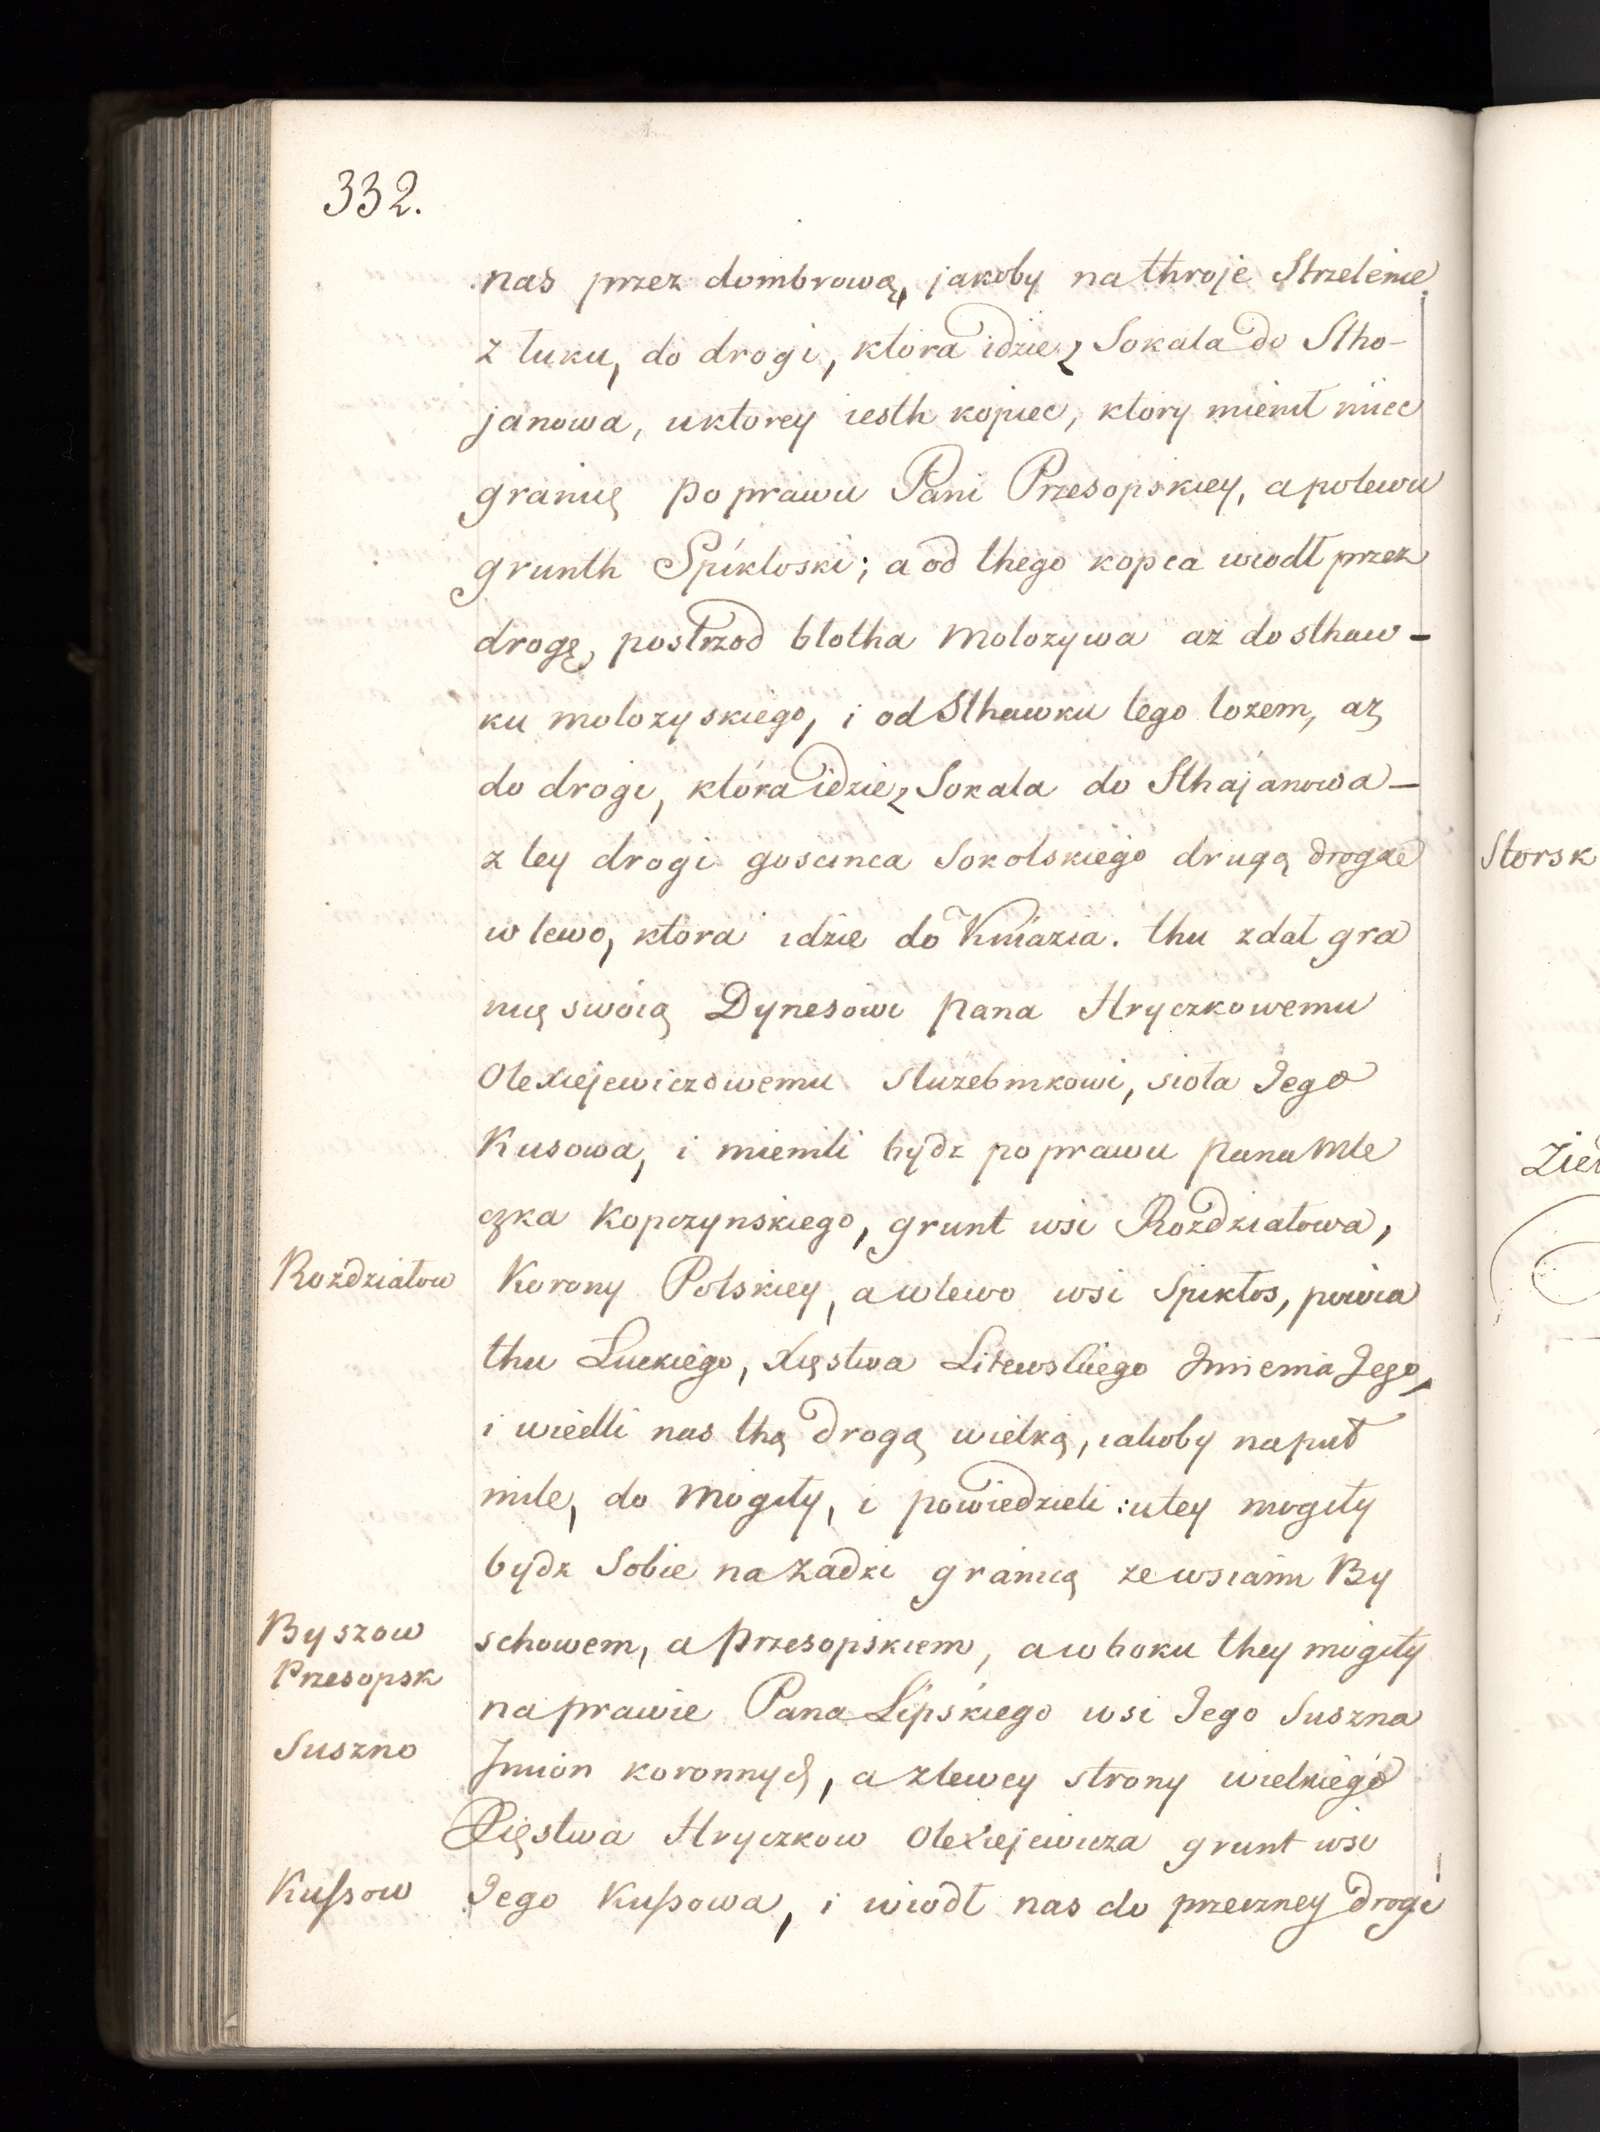 332.
nas przez dombrową, jakoby na throje Strzelenie
z łuku, do drogi, ktora idzie z Sokala do Stho-
janowa, u ktorey iesth kopiec, ktory mienił miec
granię po prawu Pani Przesopskiey, a po lewu
grunth Spikłoski; a od thego kopca wiodł przez
drogę, postrzod błotha Mołozywa az do sthaw-
ku mołozyskiego, i od Sthawku tego łozem, az
do drogi, ktora idzie z Sokala do Sthajanowa –
z tey drogi goscinca Sokolskiego drugą drogae
w lewo, ktora idzie do Kniazia. thu zdał gra
nię swoią Dynesowi pana Hryczkowemu
Olexiejewiczowemu Służebnikowi, sioła Jego
Kusowa, i mienili bydz po prawu pana Mle
czka Kopczynskiego, grunt wsi Rozdziałowa,
Rozdziałow
Korony Polskiey, a w lewo wsi Spikłos, powia
thu Łuckiego, Xięstwa Litewskiego Jmienia Jego,
i wiedli nas thą drogą wielką, iakoby na puł
mile, do Mogiły, i powiedzieli: u tey mogiły
bydz Sobie na Zadzi granią ze wsiami By
Byszow
schowem, a Przesopskiem, a w boku they mogiły
Przesopsk
na prawie Pana Lipskiego wsi Jego Suszna
Suszno
Jmion koronnych, a z lewey strony wielkiego
Xięstwa Hryczkow Olexiejewicza grunt wsi
Kussow
Jego Kussowa, i wiodł nas do przeczney drogi
Storsk